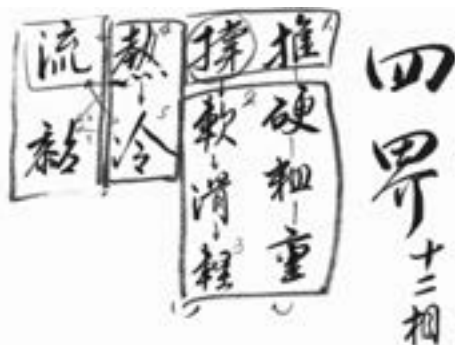 四界十二相
推硬粗重
撐軟滑輕
熱冷
流黏